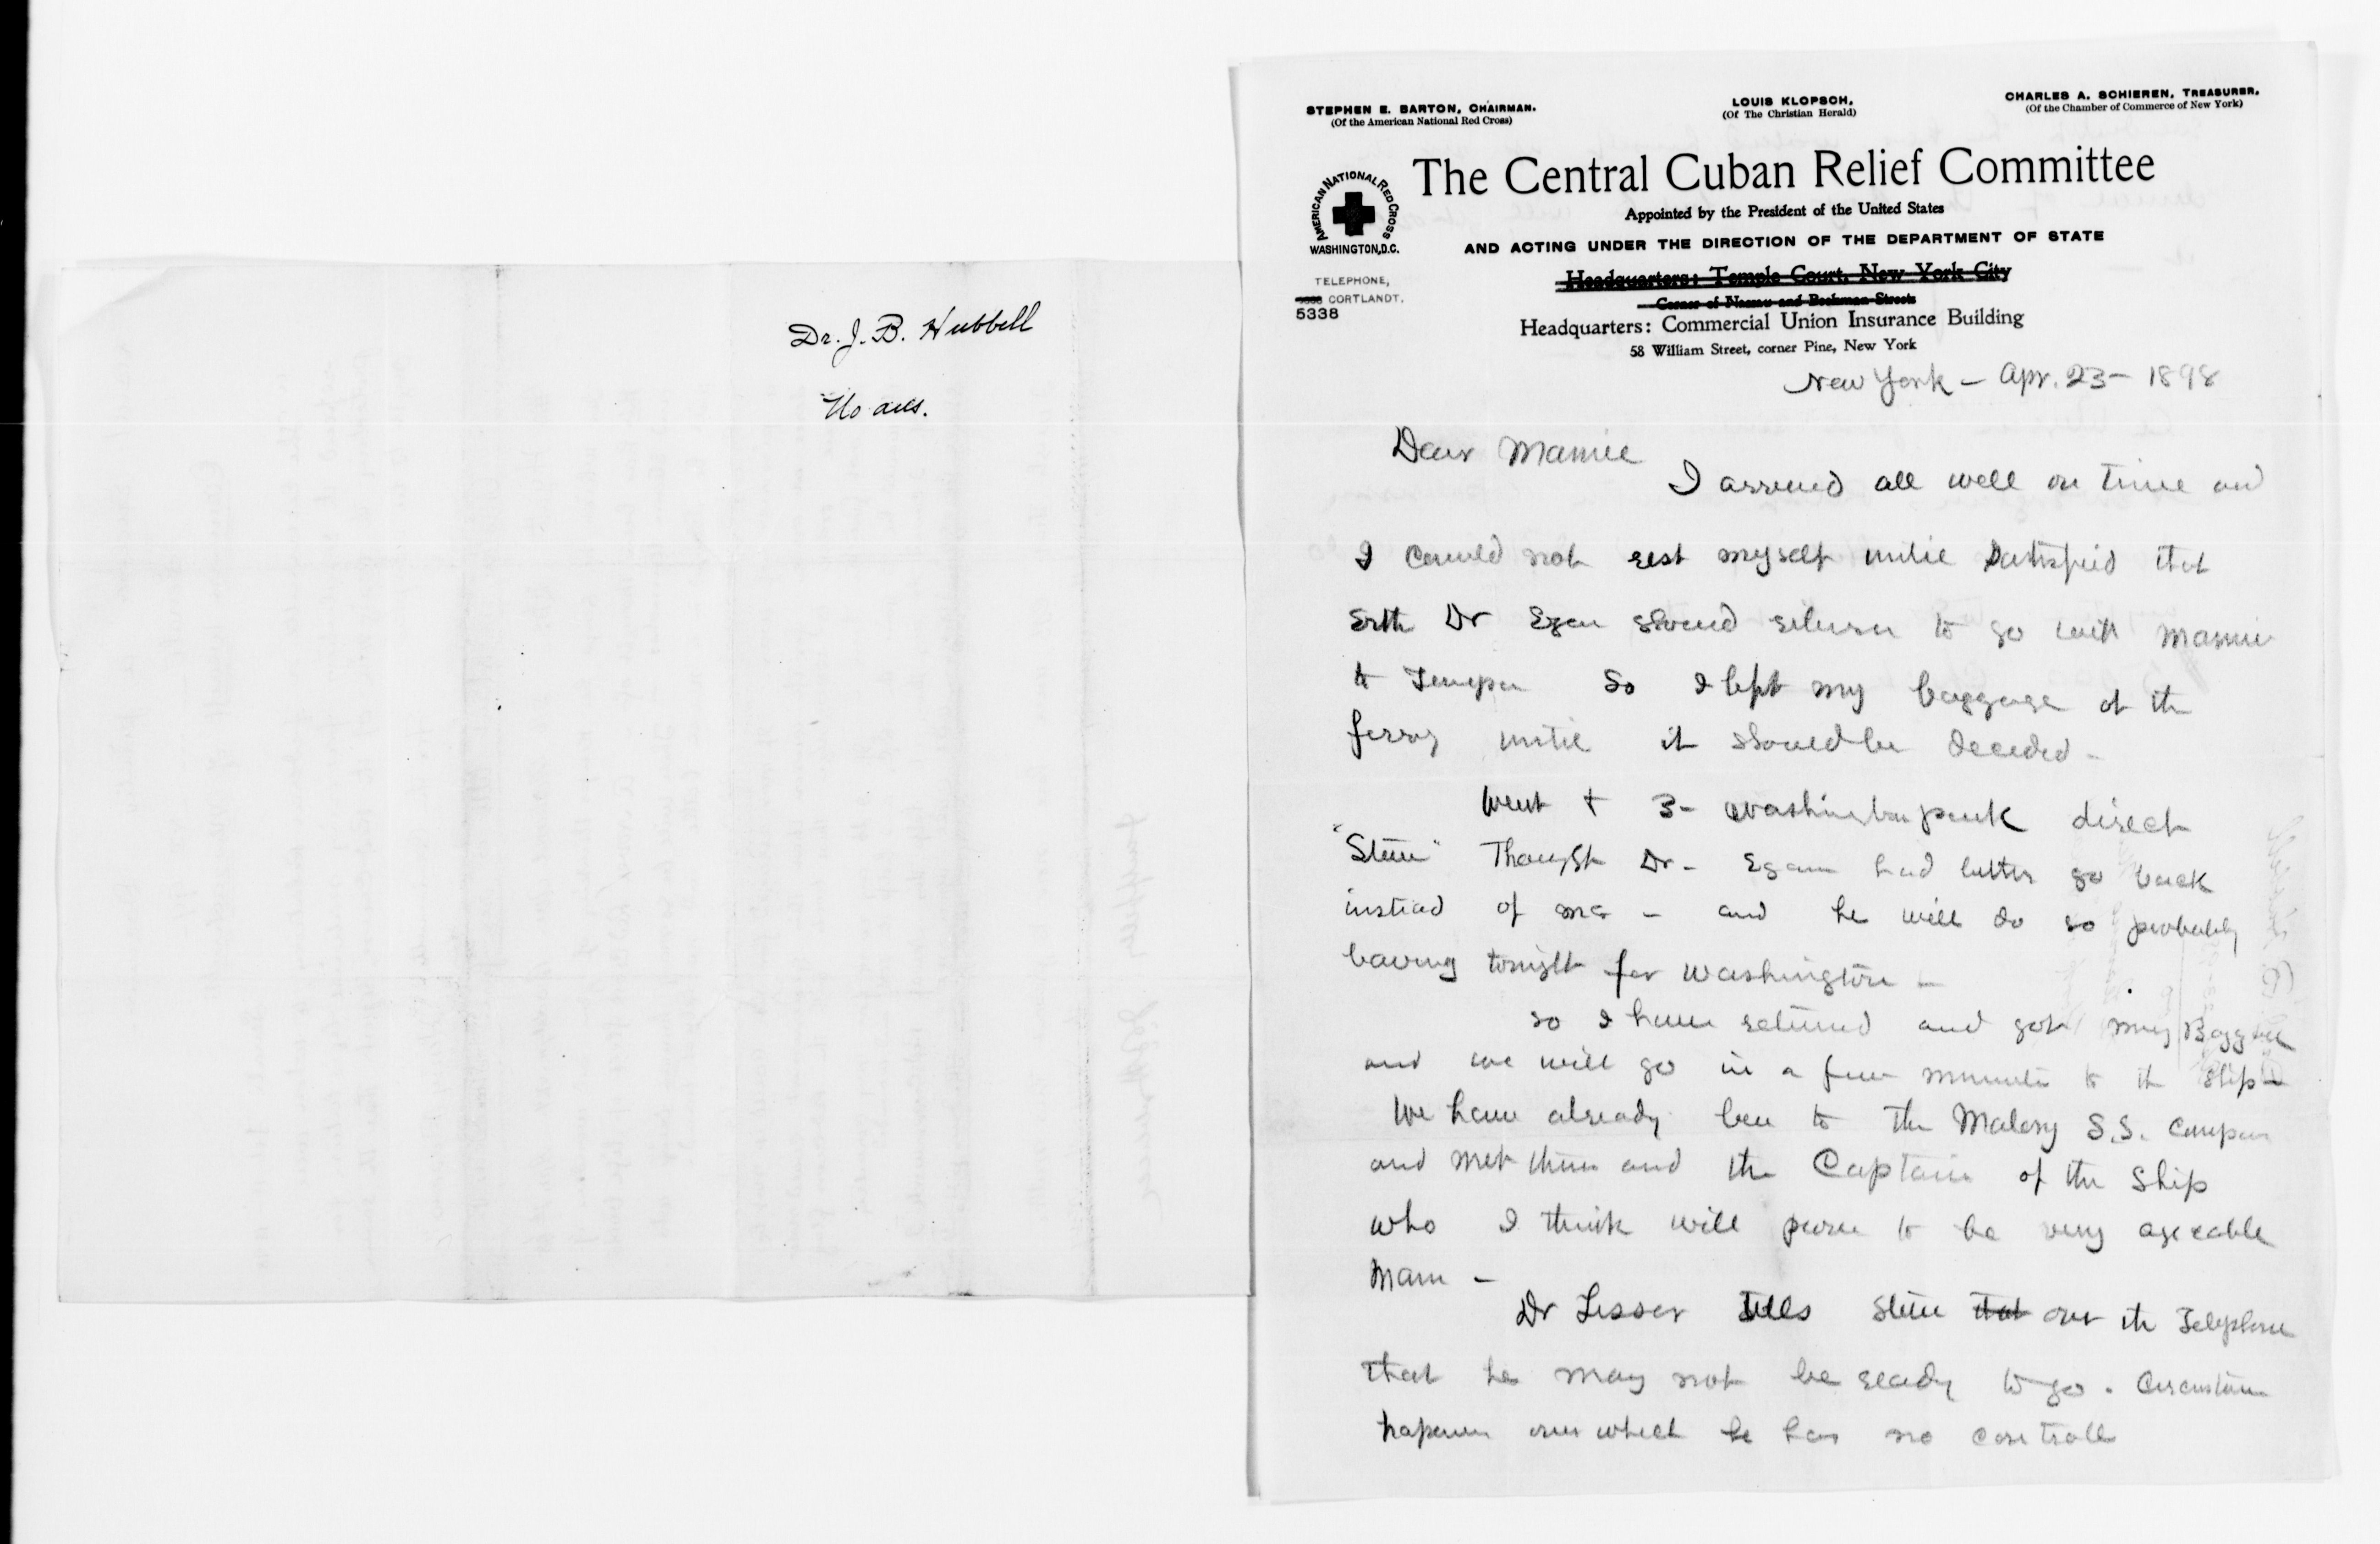 Dr. J. B. Hubbell
No ans.
STEPHEN E. BARTON, CHAIRMAN.
(Of the American National Red Cross)
LOUIS KLOPSCH,
(Of The Christian Herald)
CHARLES A. SCHIEREN, TREASURER.
(Of the Chamber of Commerce of New York)
AMERICAN NATIONAL RED CROSS
WASHINGTON, D.C.
The Central Cuban Relief Committee
Appointed by the President of the United States
AND ACTING UNDER THE DIRECTION OF THE DEPARTMENT OF STATE
TELEPHONE,
CORTLANDT.
5338
Headquarters: Temple Court, New York City
Corner of Nassau and Beekman Streets
Headquarters: Commercial Union Insurance Building
58 William Street, corner Pine, New York
New York - Apr. 23 - 1898
Dear Mamie
I arrived all well on time and
I could not rest myself until satisfied that
Dr Egan should return to go with Mamie
to Tampa So I left my baggage at the
ferry until it should be decided -
Went to 3 - Washington park direct
"Steve" Thought Dr - Egan had better go back
instead of me - and he will do so probably
leaving tonight for Washington -
so I have returned and got my Baggage
and we will go in a few minutes to the ship -
We have already been to the Malory S.S. Company
and met them and the Captain of the Ship
who I think will prove to be very agreeable
Man -
Dr Lesser tells Steve that over the Telephone
that he may not be ready to go. Circumstance
happens over which he has no controll